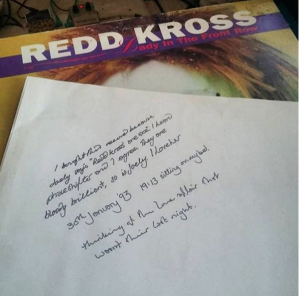 REDD KROSS
Lady In The Front Row
I bought this record because
says Redd Kross are one. I heard
phaseshifter and I agree. They are
bloody brilliant, so is Joely, I love her
30th January 93 19:13 sitting on my bed.
thinking of the love affair that
wasnt their last night.